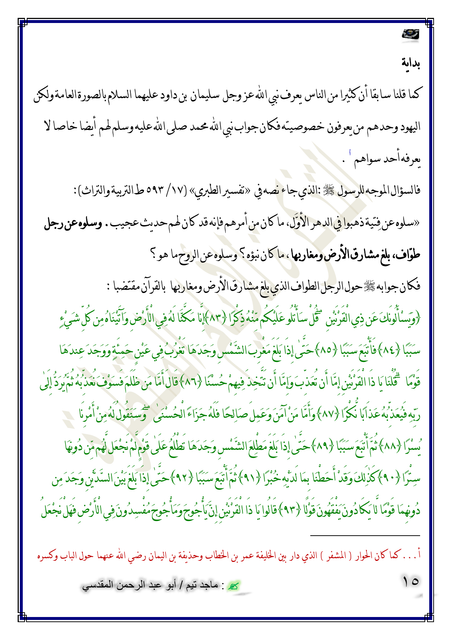 بداية
كما قلنا سابقا أن كثيرا من الناس يعرف نبي الله عز وجل سليمان بن داود عليهما السلام بالصورة العامة ولكن
اليهود وحدهم من يعرفون خصوصيته فكان جواب نبي الله محمد صلى الله عليه وسلم لهم أيضا خاصا لا
يعرفه أحد سواهم أ .
فالسؤال الموجه للرسول ﷺ :الذي جاء نصه في «تفسير الطبري» (١٧/ ٥٩٣ ط التربية والتراث):
«سلوه عن فتية ذهبوا في الدهر الأوَّل، ما كان من أمرهم فإنه قد كان لهم حديث عجيب . وسلوه عن رجل
طوّاف، بلغ مشارق الأرض ومغاربها، ما كان نبؤه؟ وسلوه عن الروح ما هو؟
فكان جوابه ﷺ حول الرجل الطواف الذي بلغ مشارق الأرض ومغاربها بالقرآن مقتضبا :
﴿وَيَسْأَلُونَكَ عَن ذِي الْقَرْنَيْنِ ۖ قُلْ سَأَتْلُو عَلَيْكُم مِّنْهُ ذِكْرًا (٨٣) إِنَّا مَكَّنَّا لَهُ فِي الْأَرْضِ وَآتَيْنَاهُ مِن كُلِّ شَيْءٍ
سَبَبًا (٨٤) فَأَتْبَعَ سَبَبًا (٨٥) حَتَّىٰ إِذَا بَلَغَ مَغْرِبَ الشَّمْسِ وَجَدَهَا تَغْرُبُ فِي عَيْنٍ حَمِئَةٍ وَوَجَدَ عِندَهَا
قَوْمًا ۗ قُلْنَا يَا ذَا الْقَرْنَيْنِ إِمَّا أَن تُعَذِّبَ وَإِمَّا أَن تَتَّخِذَ فِيهِمْ حُسْنًا (٨٦) قَالَ أَمَّا مَن ظَلَمَ فَسَوْفَ نُعَذِّبُهُ ثُمَّ يُرَدُّ إِلَىٰ
رَبِّهِ فَيُعَذِّبُهُ عَذَابًا نُّكْرًا (٨٧) وَأَمَّا مَنْ آمَنَ وَعَمِلَ صَالِحًا فَلَهُ جَزَاءً الْحُسْنَىٰ ۖ وَسَنَقُولُ لَهُ مِنْ أَمْرِنَا
يُسْرًا (٨٨) ثُمَّ أَتْبَعَ سَبَبًا (٨٩) حَتَّىٰ إِذَا بَلَغَ مَطْلِعَ الشَّمْسِ وَجَدَهَا تَطْلُعُ عَلَىٰ قَوْمٍ لَّمْ نَجْعَل لَّهُم مِّن دُونِهَا
سِتْرًا (٩٠) كَذَٰلِكَ وَقَدْ أَحَطْنَا بِمَا لَدَيْهِ خُبْرًا (٩١) ثُمَّ أَتْبَعَ سَبَبًا (٩٢) حَتَّىٰ إِذَا بَلَغَ بَيْنَ السَّدَّيْنِ وَجَدَ مِن
دُونِهِمَا قَوْمًا لَّا يَكَادُونَ يَفْقَهُونَ قَوْلًا (٩٣) قَالُوا يَا ذَا الْقَرْنَيْنِ إِنَّ يَأْجُوجَ وَمَأْجُوجَ مُفْسِدُونَ فِي الْأَرْضِ فَهَلْ نَجْعَلُ
أ . . . كما كان الحوار ( المشفر ) الذي دار بين الخليفة عمر بن الخطاب وحذيفة بن اليمان رضي الله عنهما حول الباب وكسره
١٥ : ماجد تيم / أبو عبد الرحمن المقدسي